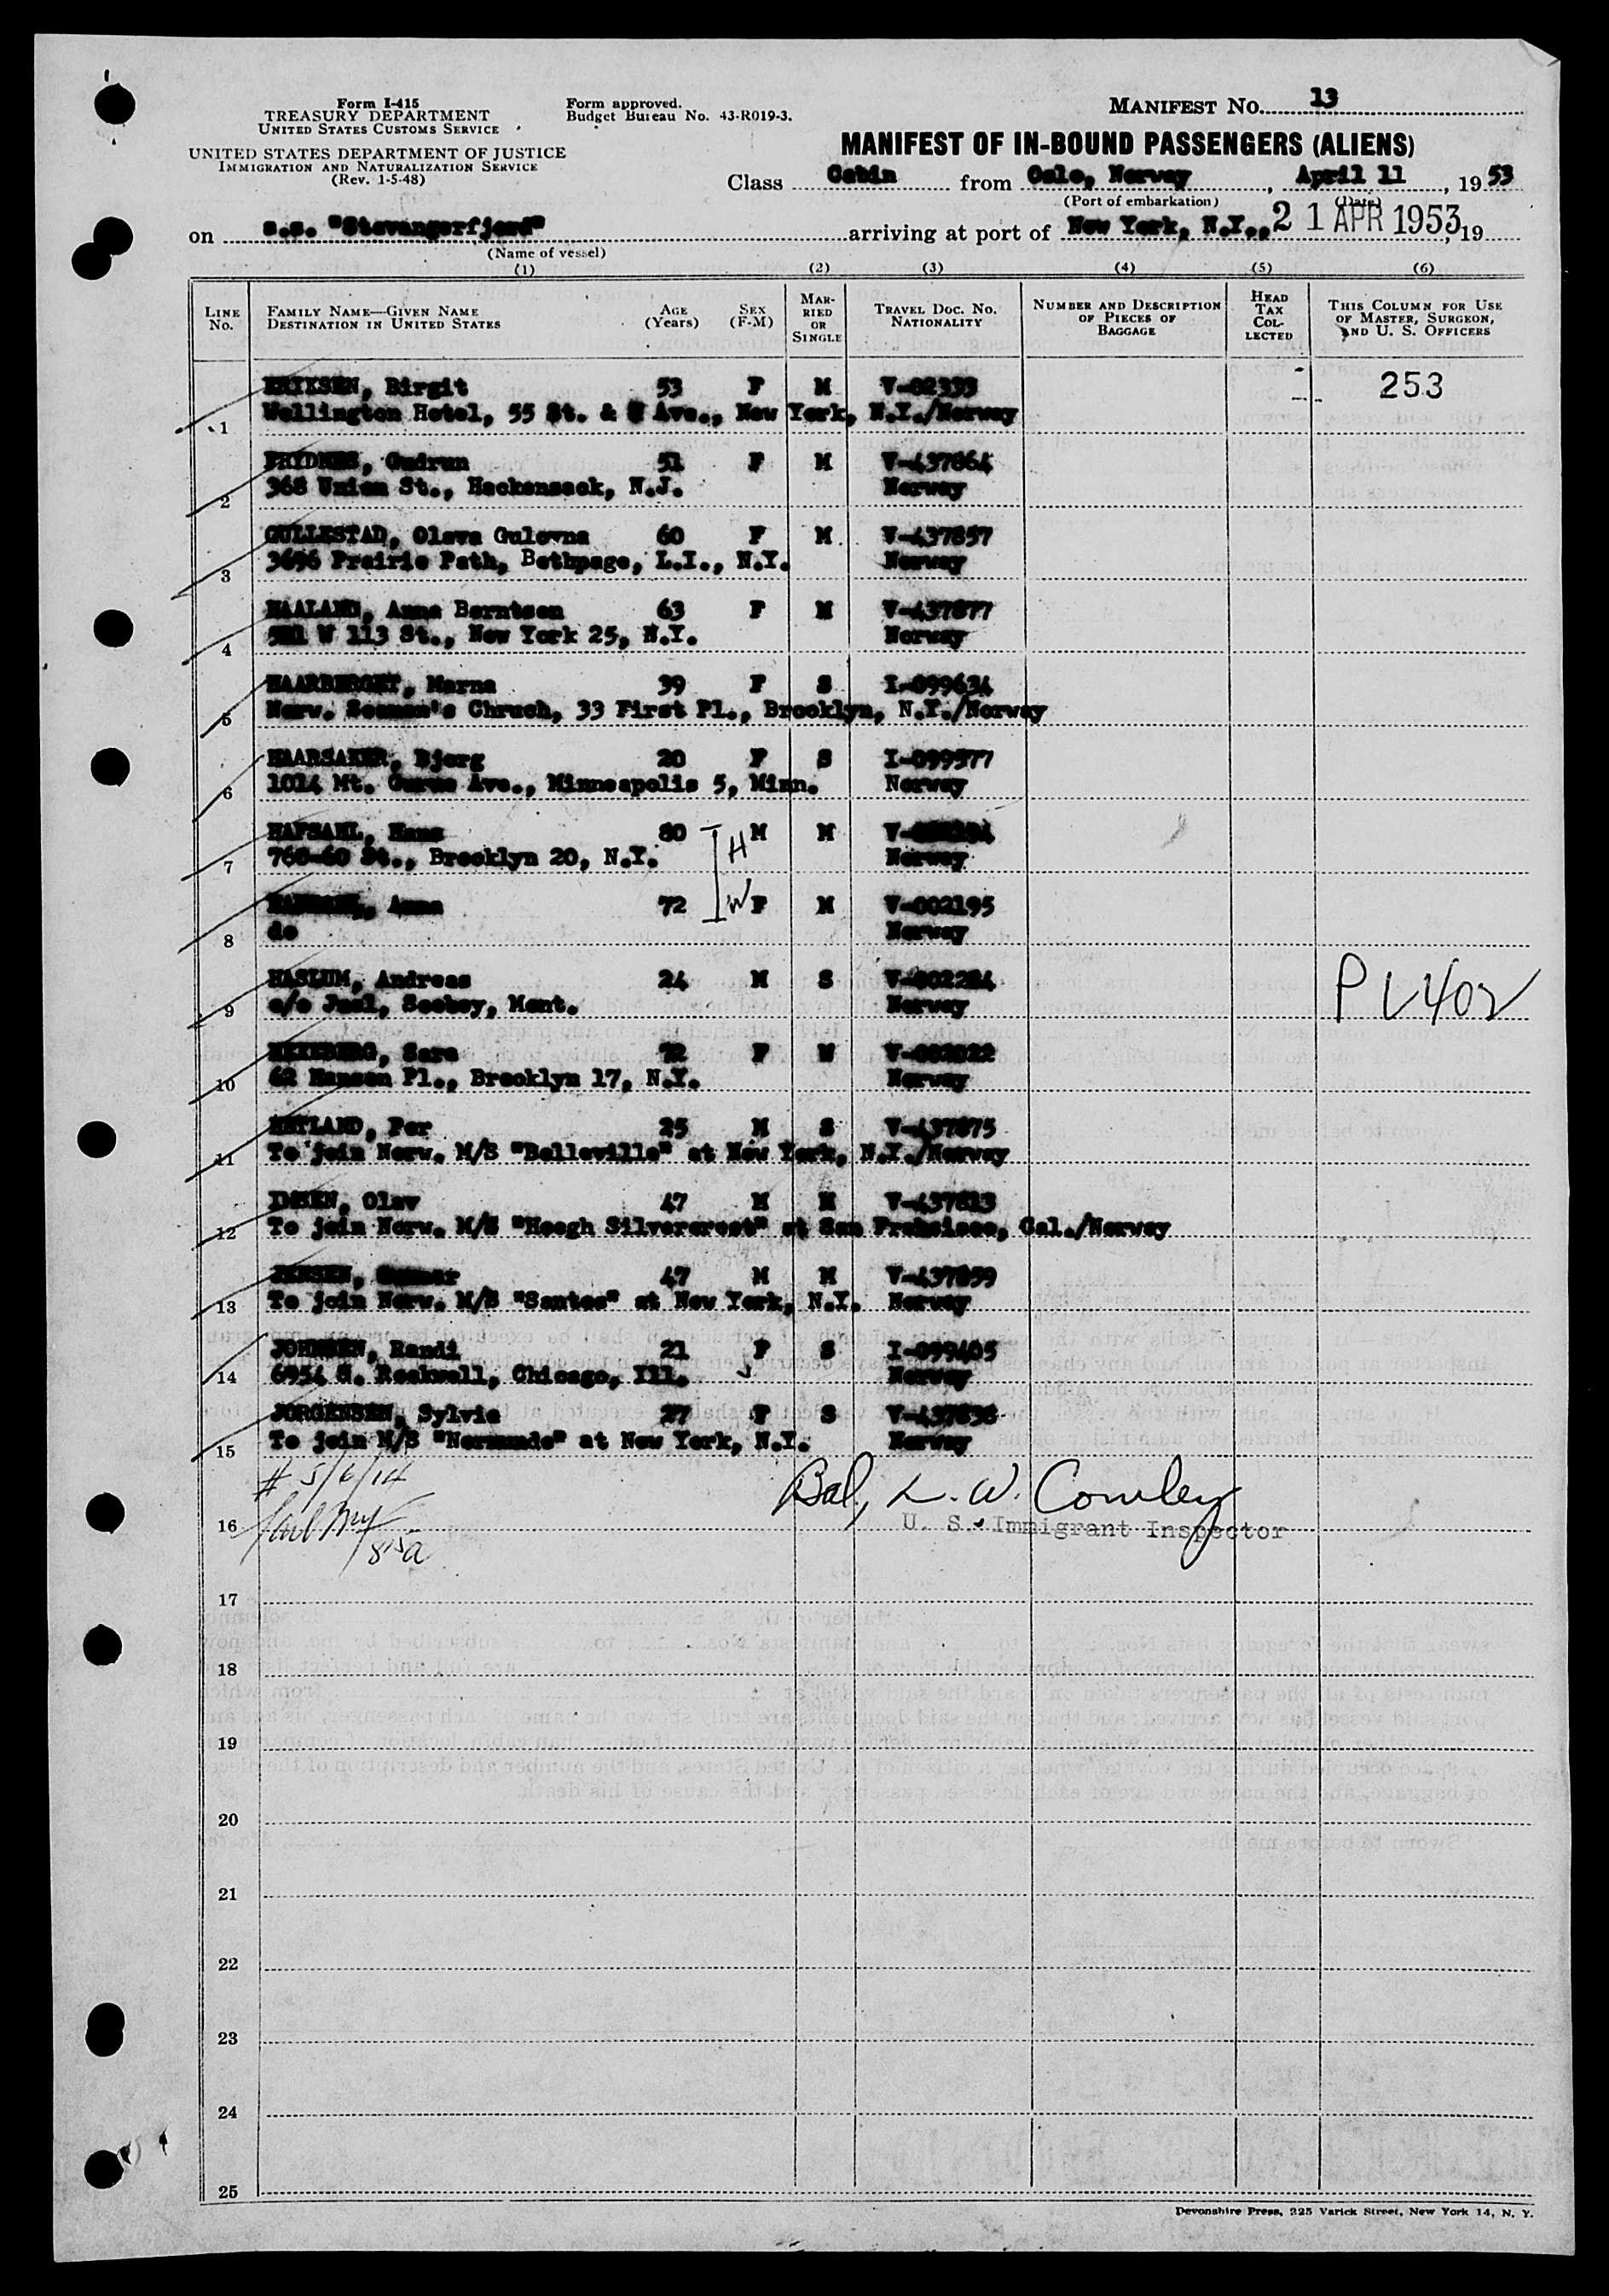 Form I-415
TREASURY DEPARTMENT
UNITED STATES CUSTOMS SERVICE
UNITED STATES DEPARTMENT OF JUSTICE
IMMIGRATION AND NATURALIZATION SERVICE
(Rev. 1-5-48)
Form approved.
Budget Bureau No. 43-R019-3.
MANIFEST NO. 13
MANIFEST OF IN-BOUND PASSENGERS (ALIENS)
Class Cabin from Oslo, Norway, April 11, 1953
(Port of embarkation) (Date)
on s.s. "Stavangerfjord" arriving at port of New York, N.Y., 21 APR 1953, 19
(Name of vessel)
(1) (2) (3) (4) (5) (6)
LINE No. FAMILY NAME—GIVEN NAME DESTINATION IN UNITED STATES AGE (Years) SEX (F-M) MARRIED OR SINGLE TRAVEL DOC. NO. NATIONALITY NUMBER AND DESCRIPTION OF PIECES OF BAGGAGE HEAD TAX COLLECTED THIS COLUMN FOR USE OF MASTER, SURGEON, AND U. S. OFFICERS
ERIKSEN, Birgit 53 F M V-02333 253
1 Wellington Hotel, 55 St. & Ave., New York, N.Y./Norway
FRYDNES, Gudrun 51 F M V-437864
2 368 Union St., Hackensack, N.J. Norway
GULLESTAD, Olava Gulovna 60 F M V-437857
3 3696 Prairie Path, Bethpage, L.I., N.Y. Norway
HAALAND, Anna Berntsen 63 F M V-437877
4 W 113 St., New York 25, N.Y. Norway
HAARBERGET, Marna 39 F S I-099634
5 Norw. Seamen's Chruch, 33 First Pl., Brooklyn, N.Y./Norway
HAARSAKER, Bjorg 20 F S I-099577
6 1014 Mt. Ave., Minneapolis 5, Minn. Norway
HAFSAHL, Hans 80 H M M
7 760-60 St., Brooklyn 20, N.Y. Norway
Anna 72 W F M V-002195
8 do Norway
HASLUM, Andreas 24 M S V-002284 P L 402
9 c/o Juel, Mont. Norway
Sara 72 F W
10 62 Hanson Pl., Brooklyn 17, N.Y. Norway
HETLAND, Per 25 M S V-437875
11 To join Norw. M/S "Belleville" at New York, N.Y./Norway
Olav 47 M M V-437813
12 To join Norw. M/S "Hoegh Silvercrest" at San Francisco, Cal./Norway
JENSEN, 47 M M V-437859
13 To join Norw. M/S "Santos" at New York, N.Y. Norway
JOHNSEN, Randi 21 F S I-099405
14 6954 S. Rockwell, Chicago, Ill. Norway
JORGENSEN, Sylvia 27 F S
15 To join M/S "Normando" at New York, N.Y. Norway
# 5/6/14
Bal, L. W. Conley
16 U. S. Immigrant Inspector
17
18
19
20
21
22
23
24
25
Devonshire Press, 225 Varick Street, New York 14, N. Y.